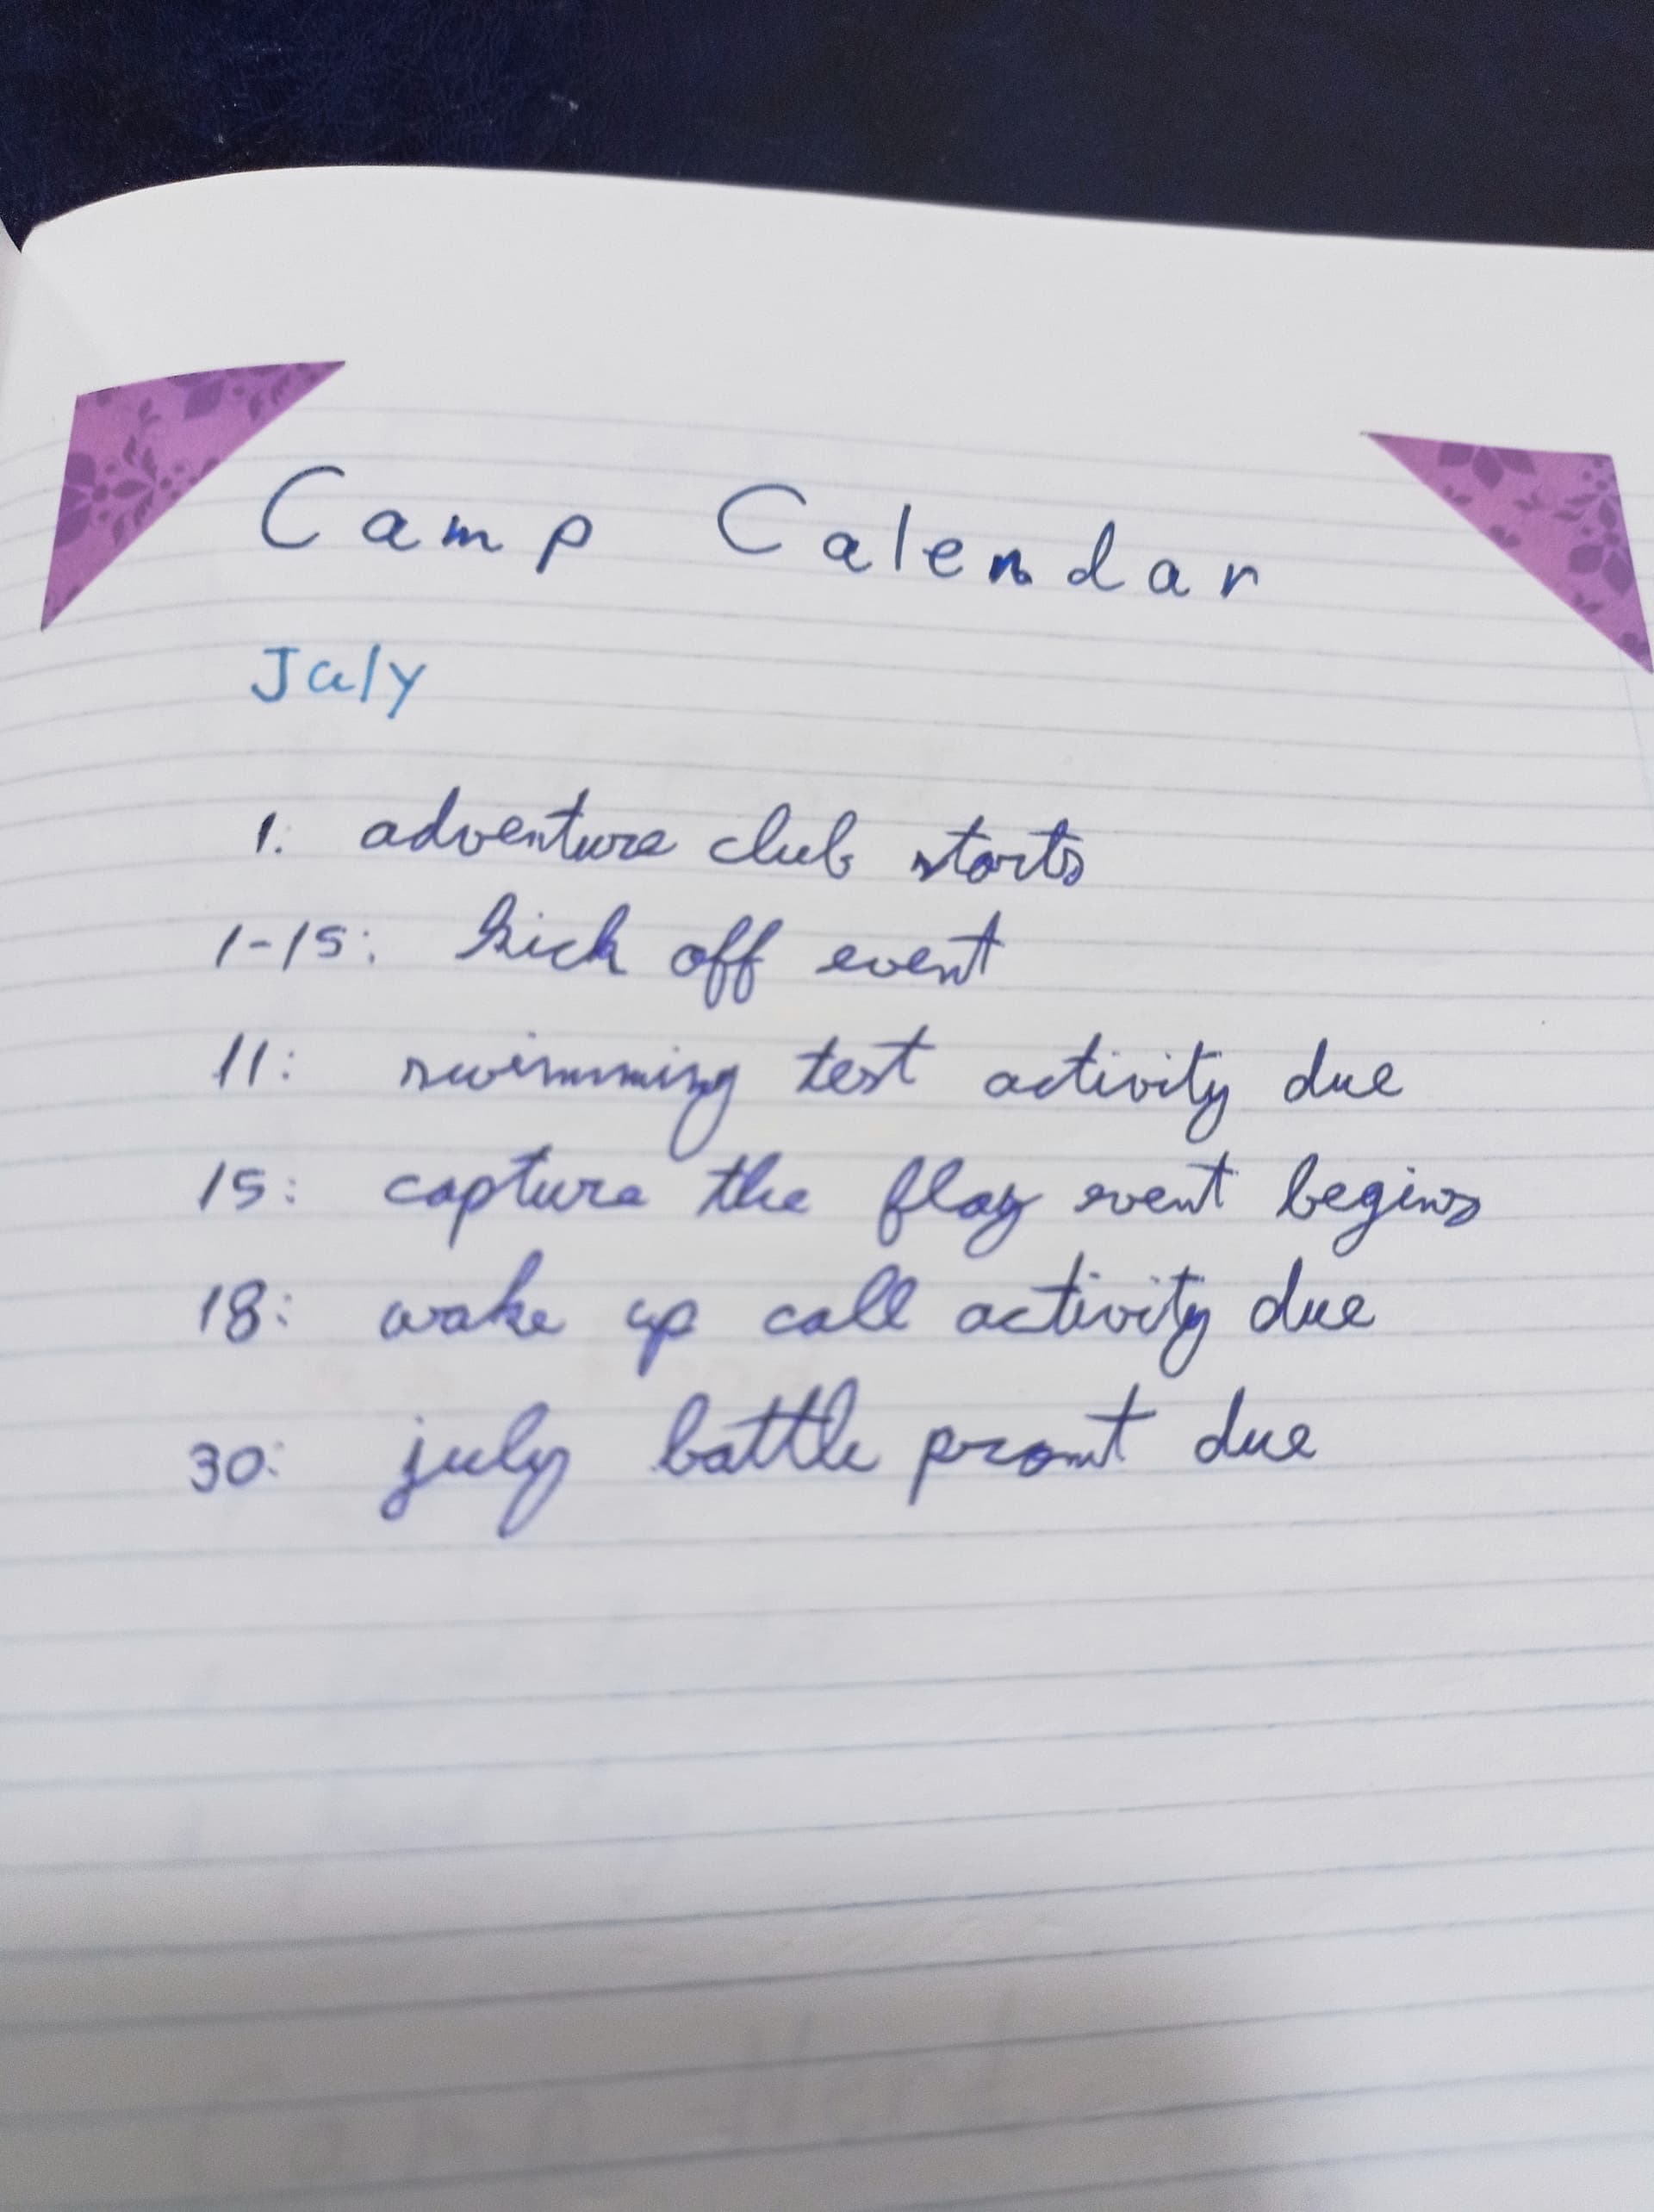 Camp Calendar
July
1: adventure club starts
1-15: kick off event
11: swimming test activity due
15: capture the flag event begins
18: wake up call activity due
30: july battle promt due